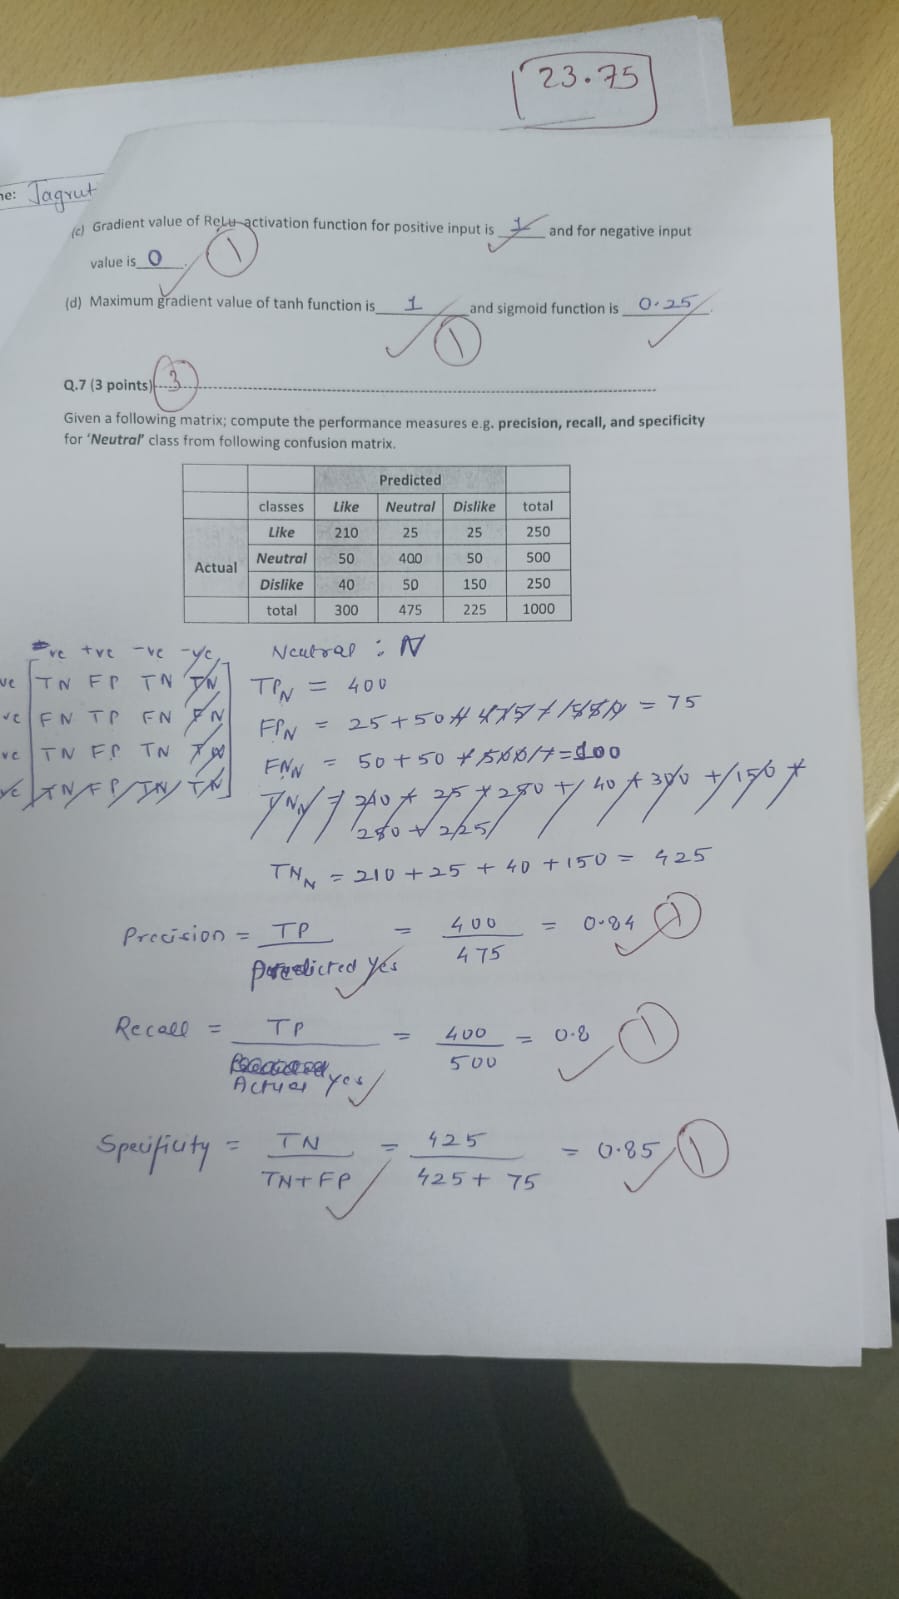 23.75
me: Jagrut
(c) Gradient value of ReLu activation function for positive input is 1 and for negative input
value is 0.
1
(d) Maximum gradient value of tanh function is 1 and sigmoid function is 0.25.
1
Q.7 (3 points) 3
Given a following matrix; compute the performance measures e.g. precision, recall, and specificity
for 'Neutral' class from following confusion matrix.
Predicted
classes Like Neutral Dislike total
Like 210 25 25 250
Actual Neutral 50 400 50 500
Dislike 40 50 150 250
total 300 475 225 1000
ve +ve -ve -ve
Neutral : N
ve TN FP TN TN
TPN = 400
ve FN TP FN FN
FPN = 25+50 = 75
ve TN FP TN
FNN = 50+50 = 100
ve TN FP TN TN
TNN = 210 + 25 + 250 + 40 + 300 + 150 +
250 + 225
TNN = 210 + 25 + 40 + 150 = 425
Precision = TP / Predicted Yes = 400 / 475 = 0.84 1
Recall = TP / Actual yes = 400 / 500 = 0.8 1
Specificity = TN / TN+FP = 425 / 425 + 75 = 0.85 1